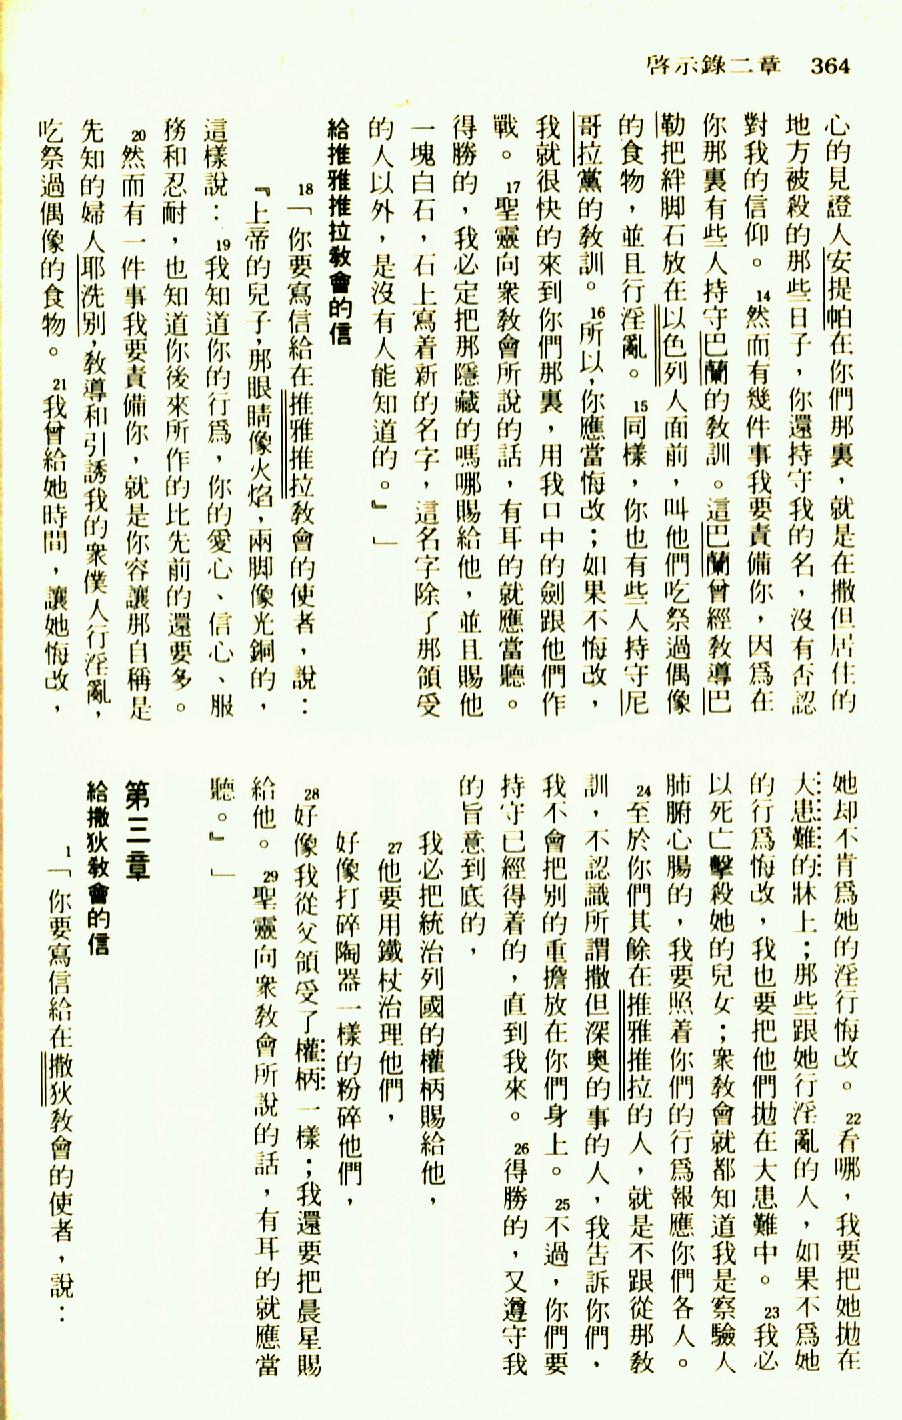 啓示錄二章　364
心的見證人安提帕在你們那裏，就是在撒但居住的
地方被殺的那些日子，你還持守我的名，沒有否認
對我的信仰。14然而有幾件事我要責備你，因爲在
你那裏有些人持守巴蘭的教訓。這巴蘭曾經教導巴
勒把絆脚石放在以色列人面前，叫他們吃祭過偶像
的食物，並且行淫亂。15同樣，你也有些人持守尼
哥拉黨的教訓。16所以，你應當悔改；如果不悔改，
我就很快的來到你們那裏，用我口中的劍跟他們作
戰。17聖靈向衆教會所說的話，有耳的就應當聽。
得勝的，我必定把那隱藏的嗎哪賜給他，並且賜他
一塊白石，石上寫着新的名字，這名字除了那領受
的人以外，是沒有人能知道的。』」
給推雅推拉教會的信
18「你要寫信給在推雅推拉教會的使者，說：
『上帝的兒子，那眼睛像火焰，兩脚像光銅的，
這樣說：19我知道你的行爲，你的愛心、信心、服
務和忍耐，也知道你後來所作的比先前的還要多。
20然而有一件事我要責備你，就是你容讓那自稱是
先知的婦人耶洗別，教導和引誘我的衆僕人行淫亂，
吃祭過偶像的食物。21我曾給她時間，讓她悔改，
她却不肯爲她的淫行悔改。22看哪，我要把她拋在
大患難的牀上；那些跟她行淫亂的人，如果不爲她
的行爲悔改，我也要把他們拋在大患難中。23我必
以死亡擊殺她的兒女；衆教會就都知道我是察驗人
肺腑心腸的，我要照着你們的行爲報應你們各人。
24至於你們其餘在推雅推拉的人，就是不跟從那教
訓，不認識所謂撒但深奧的事的人，我告訴你們，
我不會把別的重擔放在你們身上。25不過，你們要
持守已經得着的，直到我來。26得勝的，又遵守我
的旨意到底的，
我必把統治列國的權柄賜給他，
27他要用鐵杖治理他們，
好像打碎陶器一樣的粉碎他們，
28好像我從父領受了權柄一樣；我還要把晨星賜
給他。29聖靈向衆教會所說的話，有耳的就應當
聽。』」
第三章
給撒狄教會的信
1「你要寫信給在撒狄教會的使者，說：